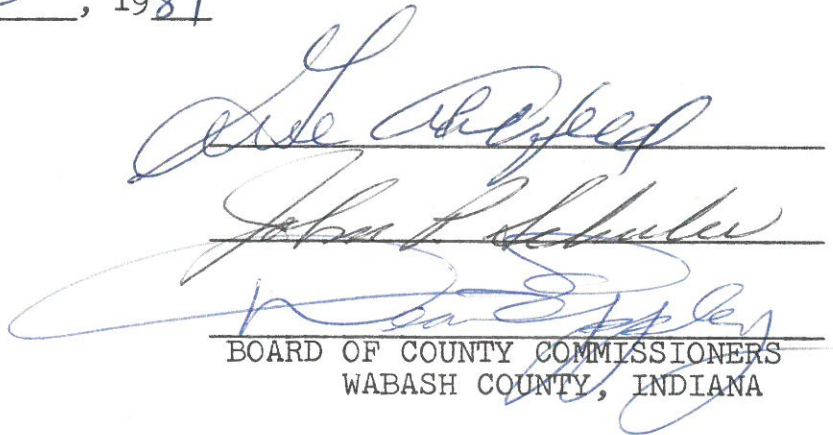 , 1981
John P. Schuler
Dean Eppley
BOARD OF COUNTY COMMISSIONERS
WABASH COUNTY, INDIANA